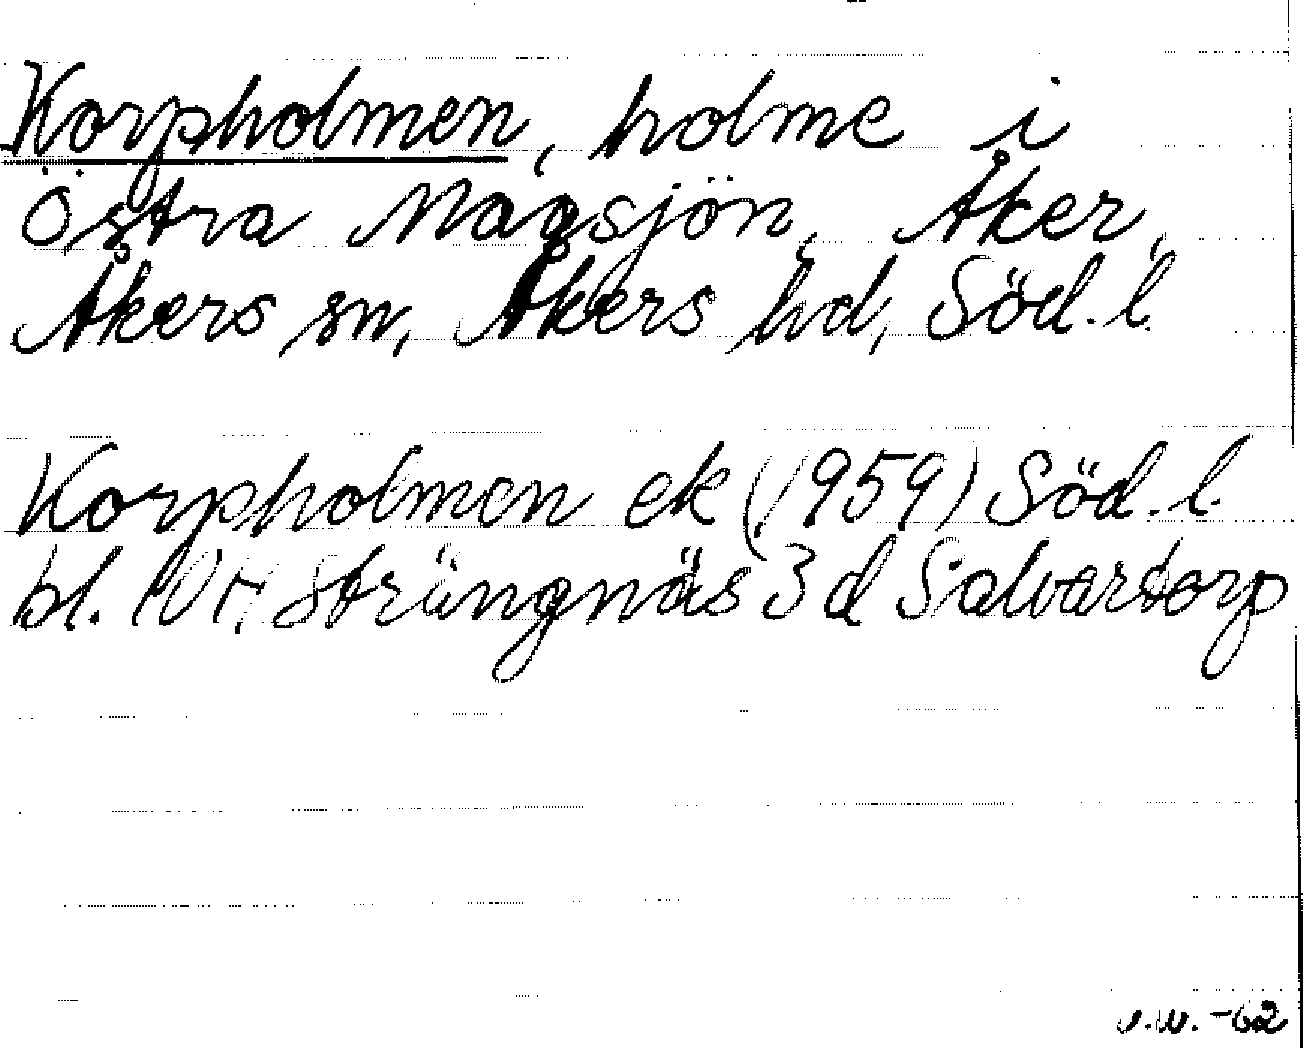 Korpholmen, holme i
Östra Magsjön, Åker,
Åkers sn, Åkers hd, Söd. l.
Korpholmen ek (1959) Söd. l.
bl. Strängnäs 3 d Salvartorp
-62